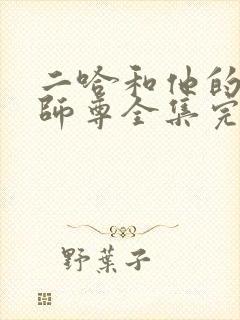 二哈和他的
師尊全集完
野葉子